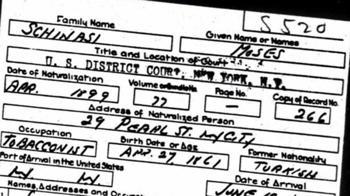 S520
Family Name Given Name or Names
SCHINASI MOSES
Title and Location of Court
U. S. DISTRICT COURT, NEW YORK, N.Y.
Date of Naturalization Volume or Bundle No. Page No. Copy of Record No.
APR. 1899 77 — 266
Address of Naturalized Person
29 PEARL ST. NY CITY
Occupation Birth Date or Age Former Nationality
TOBACCONIST APR. 27 1861 TURKISH
Port of Arrival in the United States Date of Arrival
N Y JUNE
Names, Addresses and Occupations